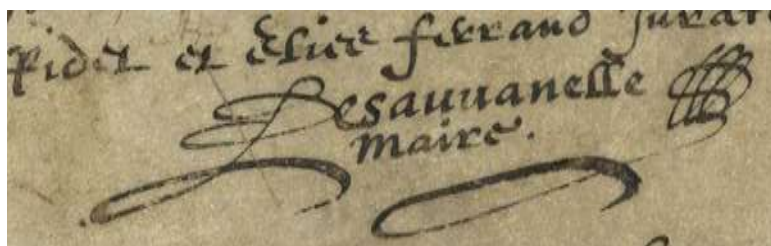 et Elie ferrand Jurat
Desauuanelle
maire.